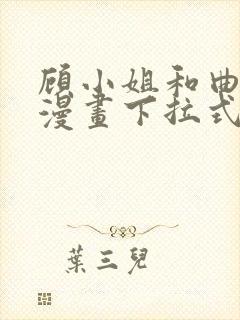 顾小姐和曲
漫畫下拉式
葉三兒